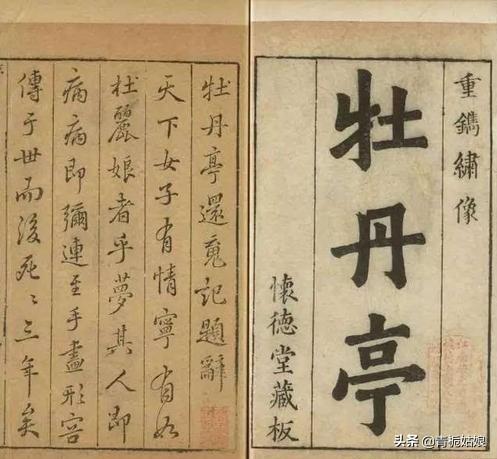 重鐫繡像
牡丹亭
懷德堂藏板
牡丹亭還魂記題辭
天下女子有情寧有如
杜麗娘者乎夢其人即
病病即彌連至手畫形容
傳于世而後死死三年矣
头条 @青栀姑娘